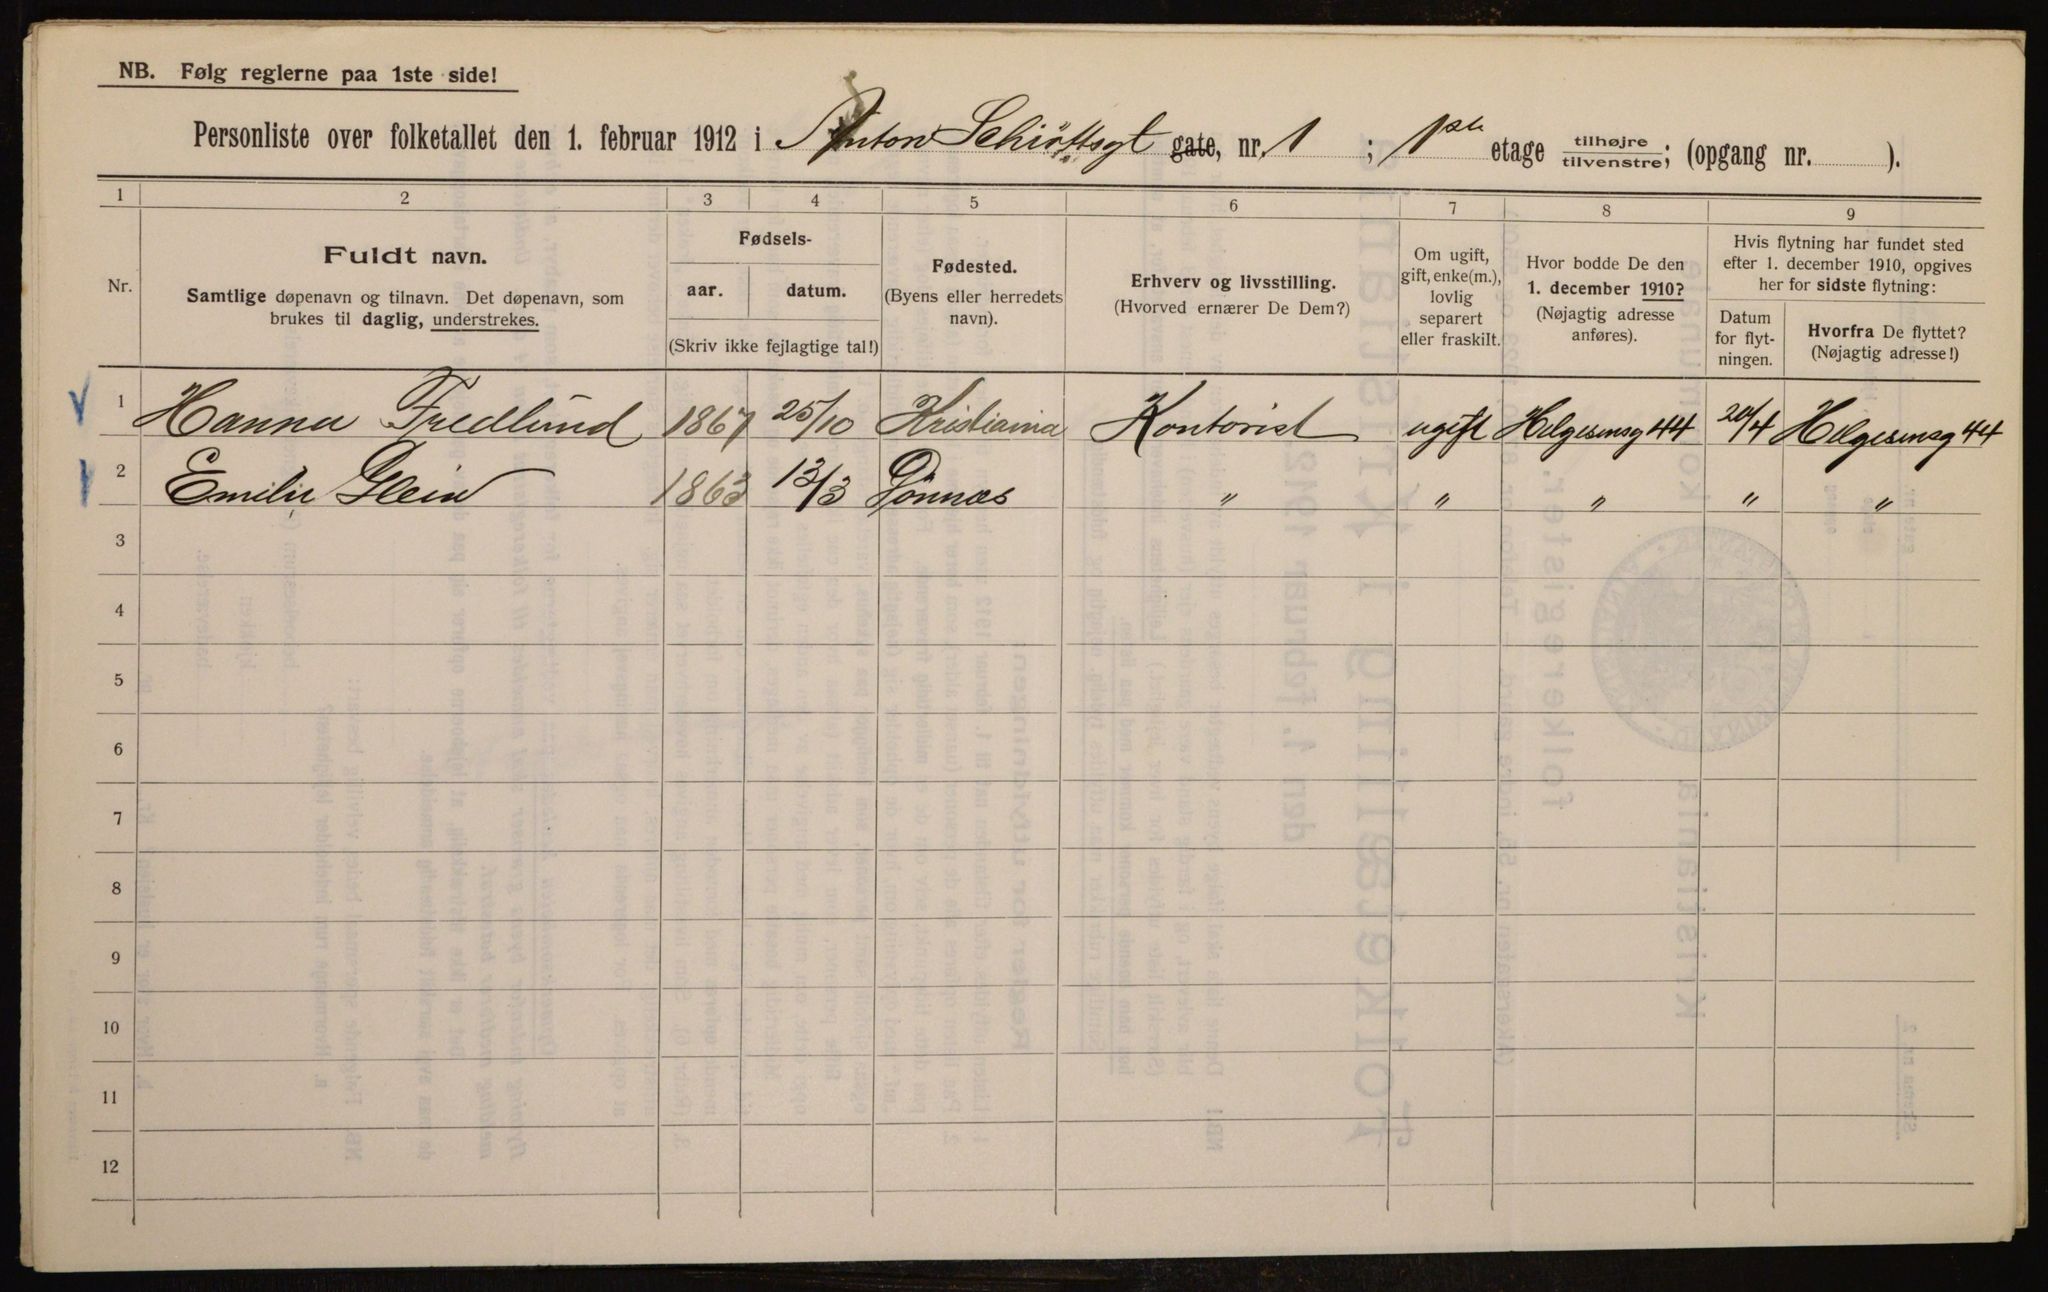 NB. Følg reglerne paa 1ste side!
Personliste over folketallet den 1. februar 1912 i Anton Schiøttsgt gate, nr. 1 ; 1ste etage tilhøjre tilvenstre; (opgang nr. ).
1 2 3 4 5 6 7 8 9
Nr.
Fuldt navn.
Samtlige døpenavn og tilnavn. Det døpenavn, som
brukes til daglig, understrekes.
Fødsels-
aar. datum.
(Skriv ikke fejlagtige tal!)
Fødested.
(Byens eller herredets
navn).
Erhverv og livsstilling.
(Hvorved ernærer De Dem?)
Om ugift,
gift, enke(m.),
lovlig
separert
eller fraskilt.
Hvor bodde De den
1. december 1910?
(Nøjagtig adresse
anføres).
Hvis flytning har fundet sted
efter 1. december 1910, opgives
her for sidste flytning:
Datum
for flyt-
ningen.
Hvorfra De flyttet?
(Nøjagtig adresse!)
1 Hanna Fredlund 1867 25/10 Kristiania Kontorist ugift Helgesensg 44 20/4 Helgesensg 44
2 Emilie Glein 1863 13/3 Dönnæs " " " " "
3
4
5
6
7
8
9
10
11
12